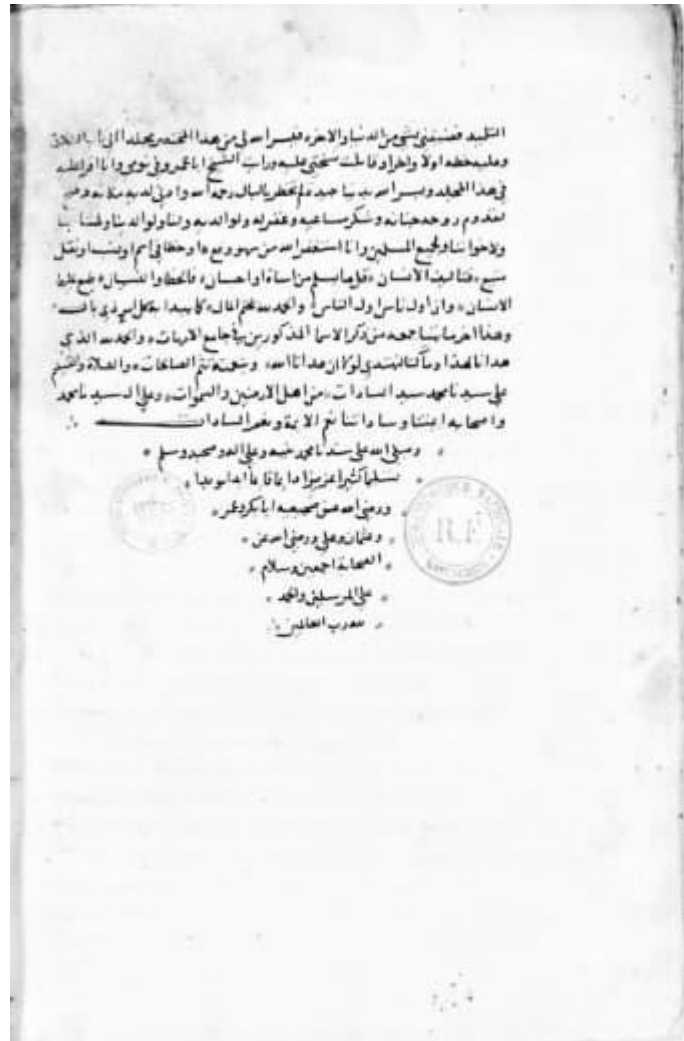 التلبيد فعسفني بشي من الدنيا والاخره فيسر الله لي من هذا المختصر مجلد الى باب
وعليه خطه اولا واخرا وقابلت نسختي عليه ورايت الشيخ ابا عمرو في نومي وانا اواظب
في هذا المجلد ويسر الله به ما لم يخطر بالبال رحمه الله وادنى لديه مكانه ومنح
لقدوم روحه جنانه وشكر مساعيه وغفر له ولوالديه ولنا ولوالدينا
ولاخواننا ولجميع المسلمين وانا استغفر الله من سهو وخطا في اسم او نسب او نقل
الانسان قل ما يسلم من اساة او احسان فالخطا والنسيان طبع
الانسان وان اول ناس اول الناس والحمد لله كما يبدا به كل امر ذي بال
وهذا اخر ما تيسر جمعه من ذكر الاسما المذكورين في جامع الامهات والحمد لله الذي
هدانا لهذا وما كنا لنهتدي لولا ان هدانا الله وبنعمته تتم الصالحات والصلاة والتسليم
على سيدنا محمد سيد السادات من اهل الارضين والسموات وعلى ال سيدنا محمد
واصحابه ايمتنا وساداتنا نعم الايمة ونعم السادات
وصلى الله على سيدنا محمد وعلى اله وصحبه وسلم
تسليما كثيرا عزيزا دايما
ورضي الله عن صحبه ابا بكر وعمر
وعثمان وعلي ورضي الله عن
الصحابة اجمعين وسلام
على المرسلين والحمد
لله رب العالمين
R.F.